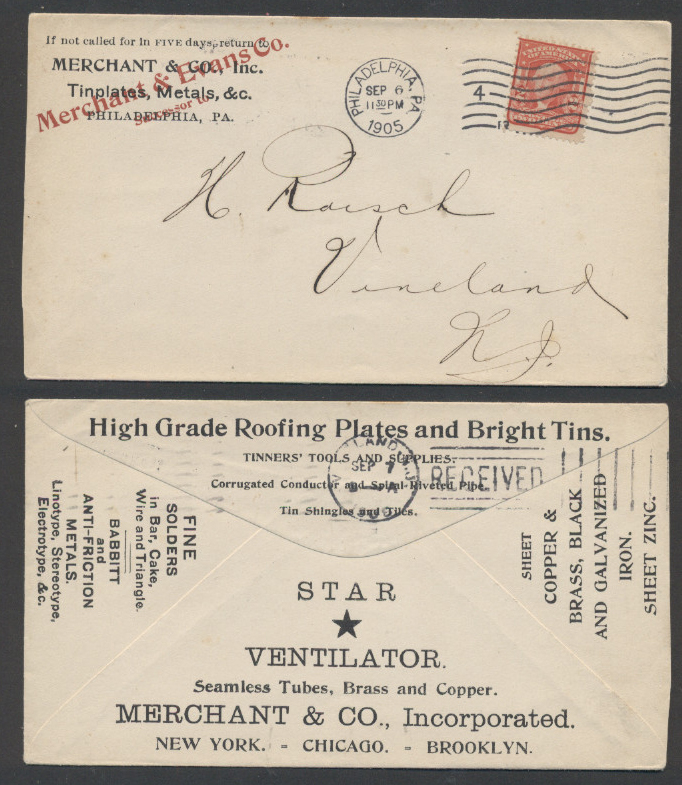 If not called for in FIVE days, return to
MERCHANT & CO., Inc.
Tinplates, Metals, &c.
PHILADELPHIA, PA.
Merchant & Evans Co.
Successor to
PHILADELPHIA, PA.
SEP 6
11 30 PM
1905
4
H. Raisch
Vineland
N.J.
High Grade Roofing Plates and Bright Tins.
TINNERS' TOOLS AND SUPPLIES.
Corrugated Conductor and Spiral Riveted Pipe.
Tin Shingles and Tiles.
SEP 7
RECEIVED
FINE
SOLDERS
in Bar, Cake,
Wire and Triangle.
BABBITT
and
ANTI-FRICTION
METALS.
Linotype, Stereotype,
Electrotype, &c.
SHEET
COPPER &
BRASS, BLACK
AND GALVANIZED
IRON.
SHEET ZINC.
STAR
★
VENTILATOR.
Seamless Tubes, Brass and Copper.
MERCHANT & CO., Incorporated.
NEW YORK. - CHICAGO. - BROOKLYN.